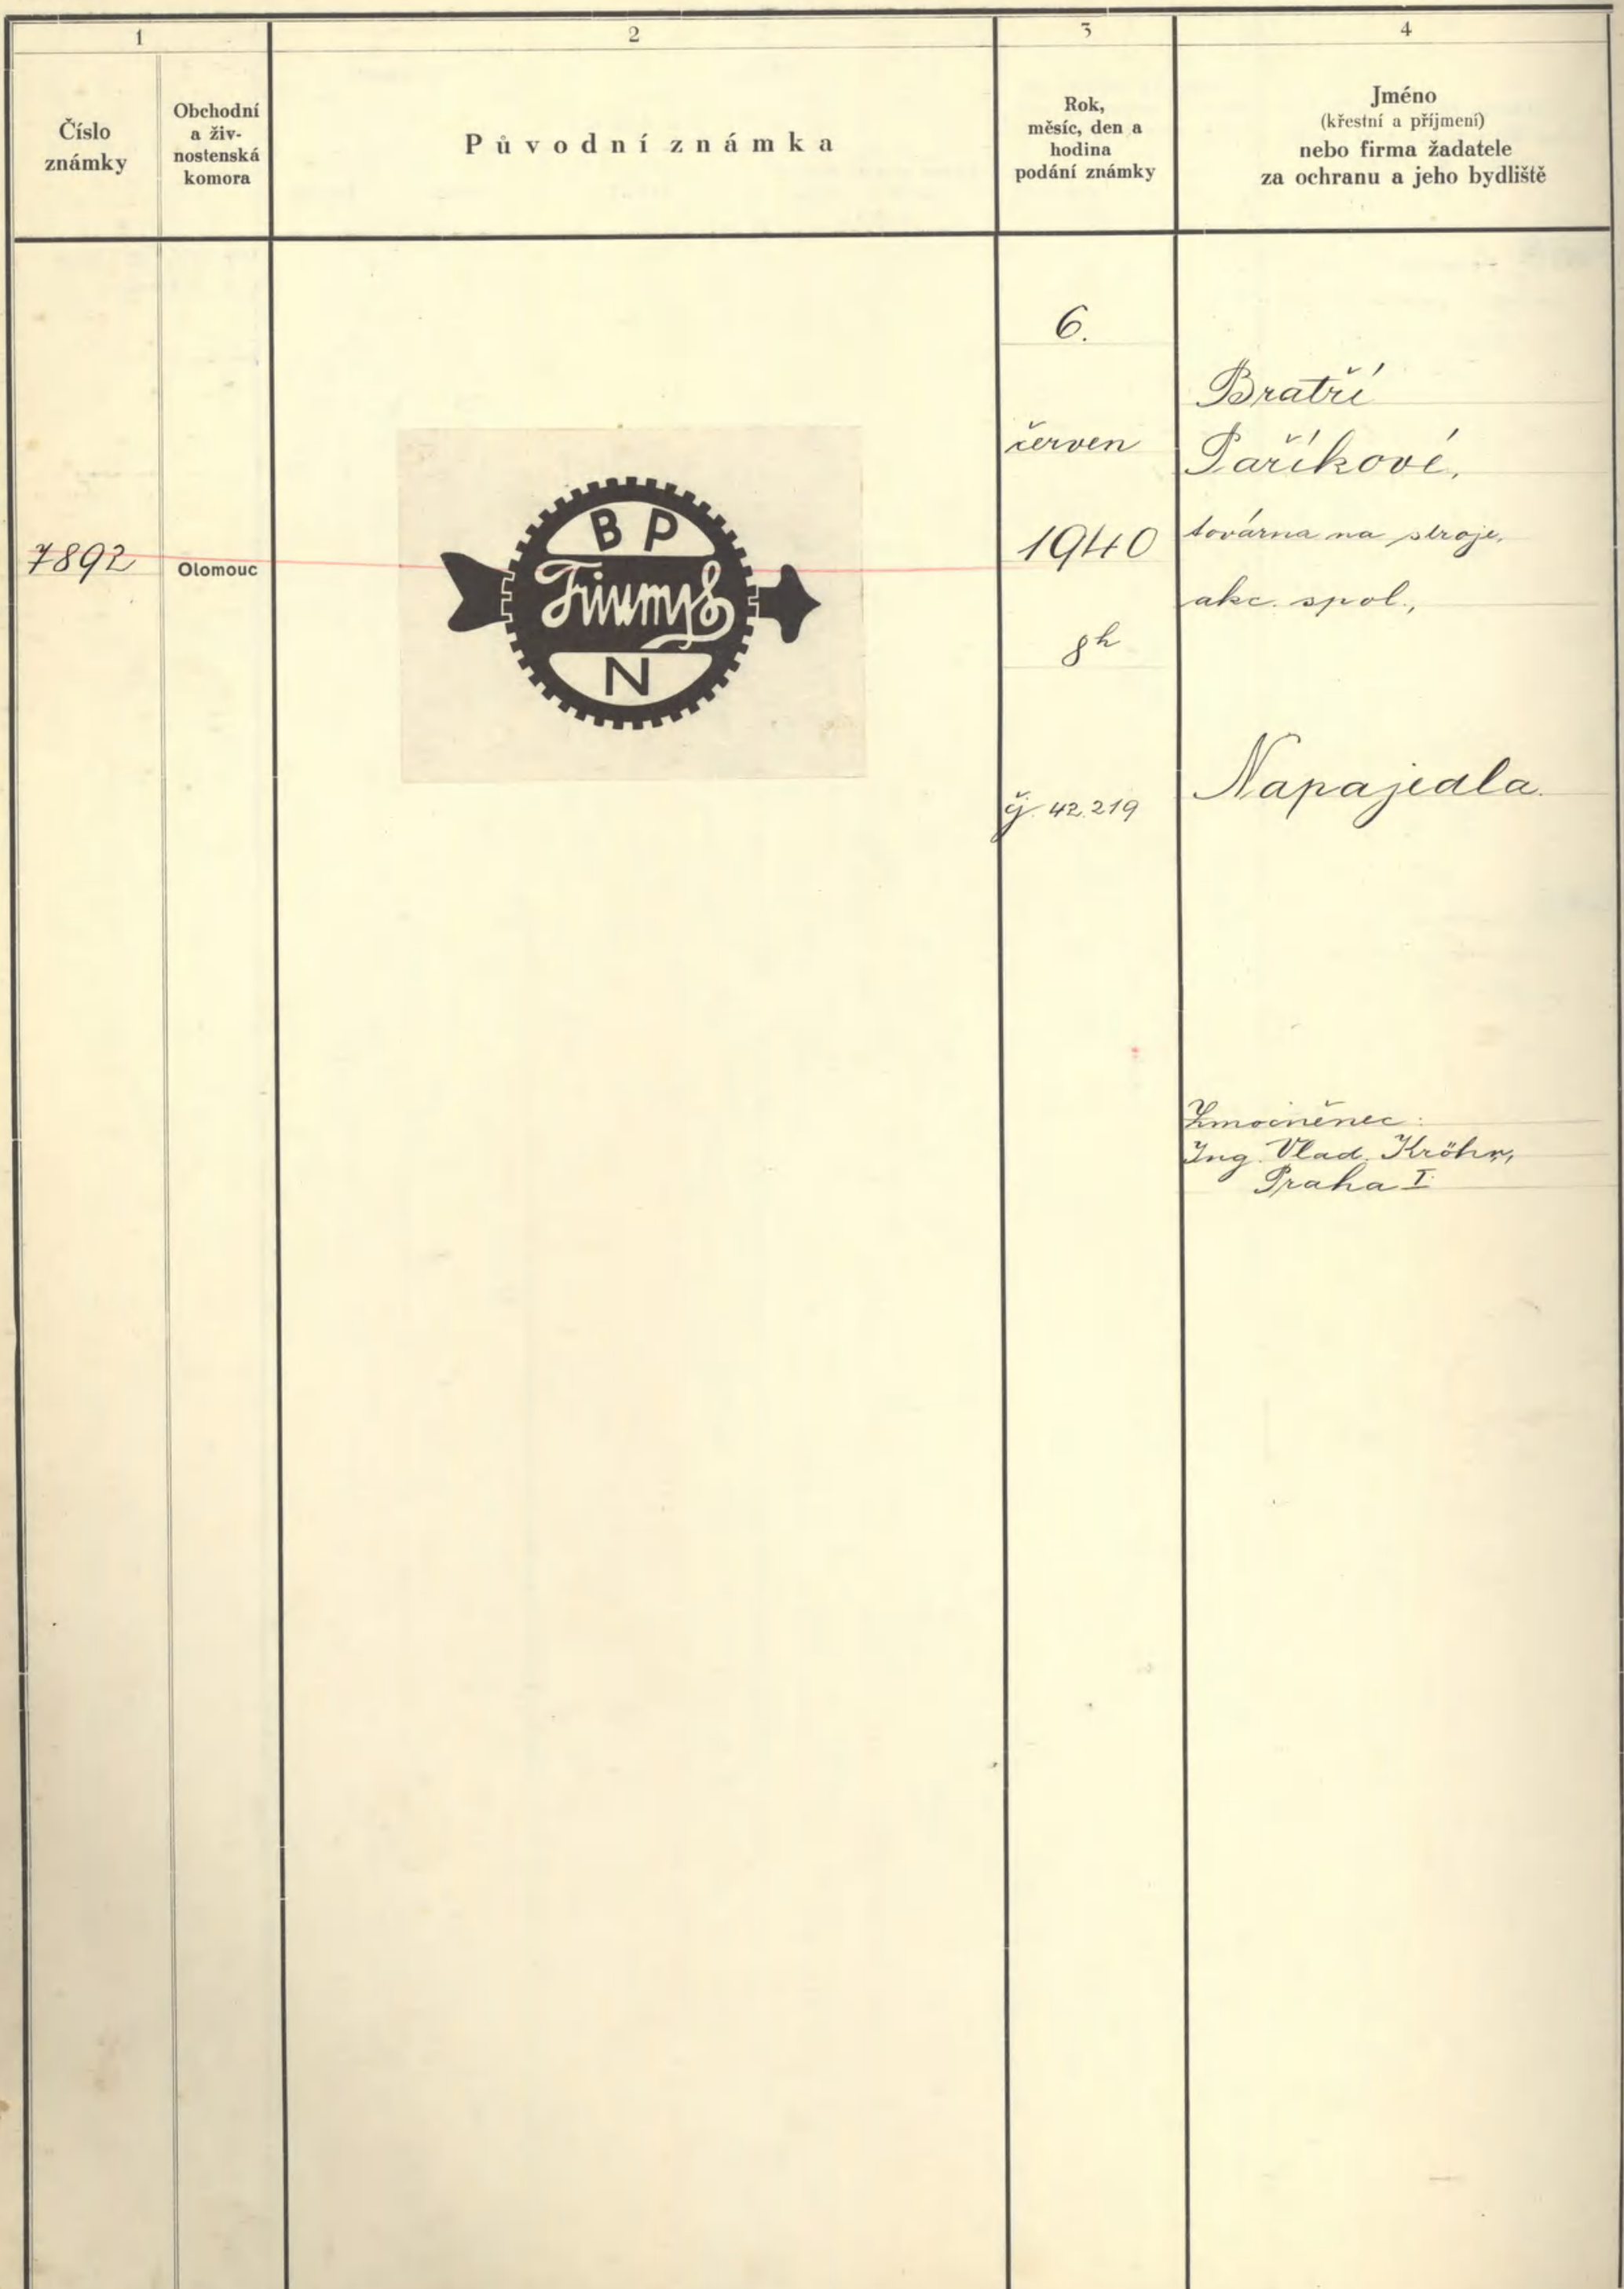 1
2
3
4
Číslo
známky
Obchodní
a živ-
nostenská
komora
Původní známka
Rok,
měsíc, den a
hodina
podání známky
Jméno
(křestní a příjmení)
nebo firma žadatele
za ochranu a jeho bydliště
7892
Olomouc
B P
Triumph
N
6.
červen
1940
8h
čj. 42.219
Bratří
Paříkové,
továrna na stroje,
akc. spol.,
Napajedla.
Zmocněnec:
Ing. Vlad. Kröhn,
Praha I.